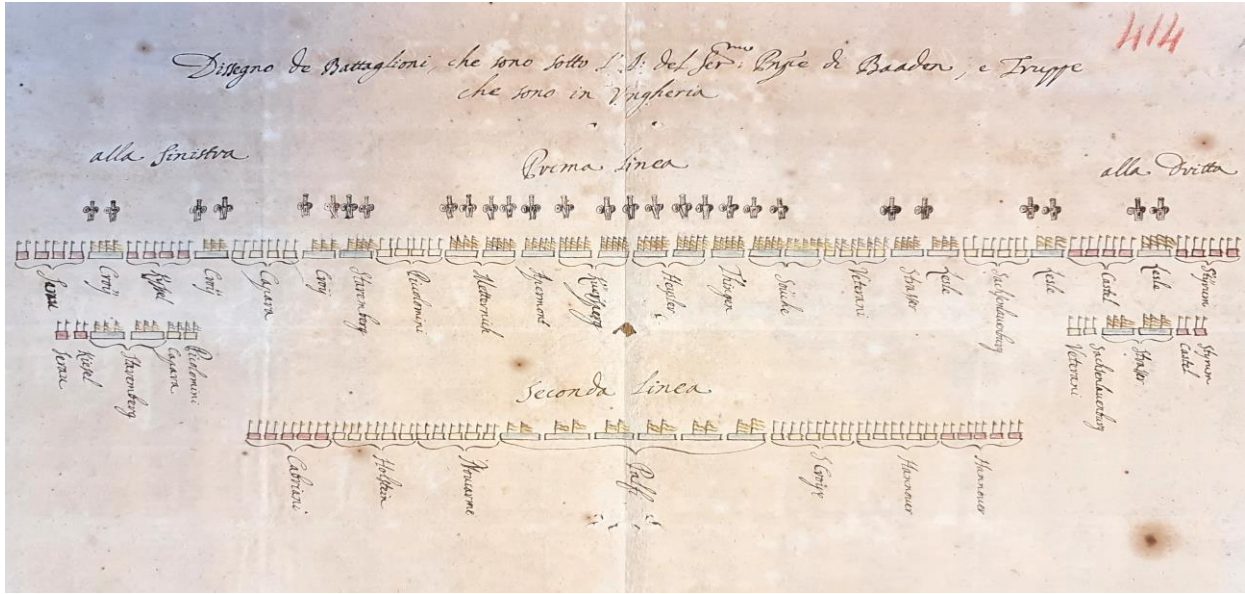 414
Dissegno de Battaglioni, che sono sotto L'A: del Ser:mo Pnpe di Baaden, e Truppe
che sono in Vngheria
alla sinistra
Prima Linea
alla dritta
Serau
Croÿ
Kissel
Croÿ
Caprara
Croÿ
Staremberg
Piccolomini
Metternick
Apermont
Heysler
Thingen
Souche
Veterani
Strasser
Lesle
Sachsenlauenburg
Lesle
Castel
Lesle
Stÿrum
Serau
Kissel
Staremberg
Caprara
Piccolomini
Veterani
Sachsenlauenburg
Strasser
Castel
Styrum
Seconda Linea
Cabriani
Holstein
Palfi
S. Croix
Hannouer
Hannouer